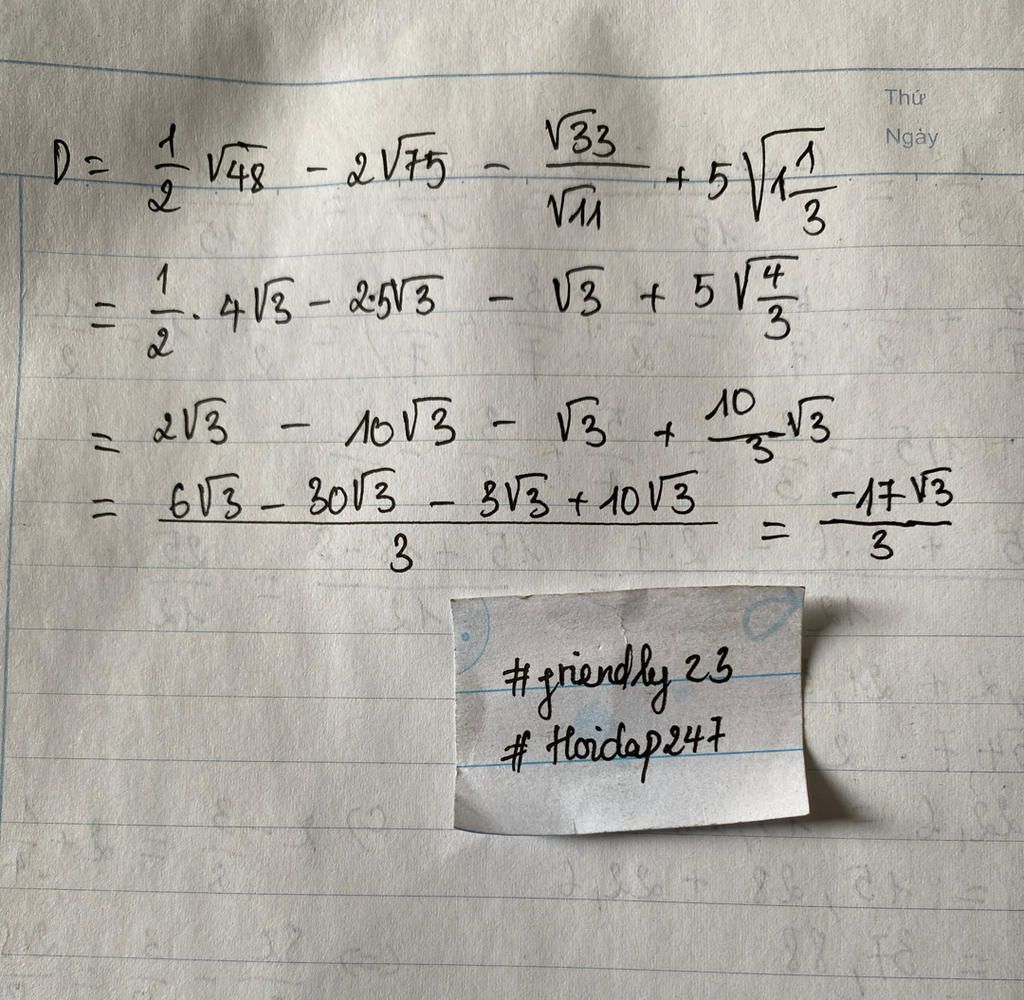 Thứ
Ngày
D = 1/2 √48 - 2√75 - √33/√11 + 5√(1 1/3)
= 1/2 . 4√3 - 2.5√3 - √3 + 5√(4/3)
= 2√3 - 10√3 - √3 + 10/3 √3
= (6√3 - 30√3 - 3√3 + 10√3)/3 = -17√3/3
#friendly23
#Hoidap247